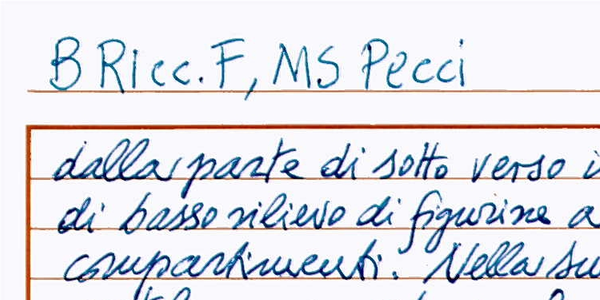 B Ricc. F, MS Pecci
dalla parte di sotto verso
di basso rilievo di figurine a
compartimenti. Nella su